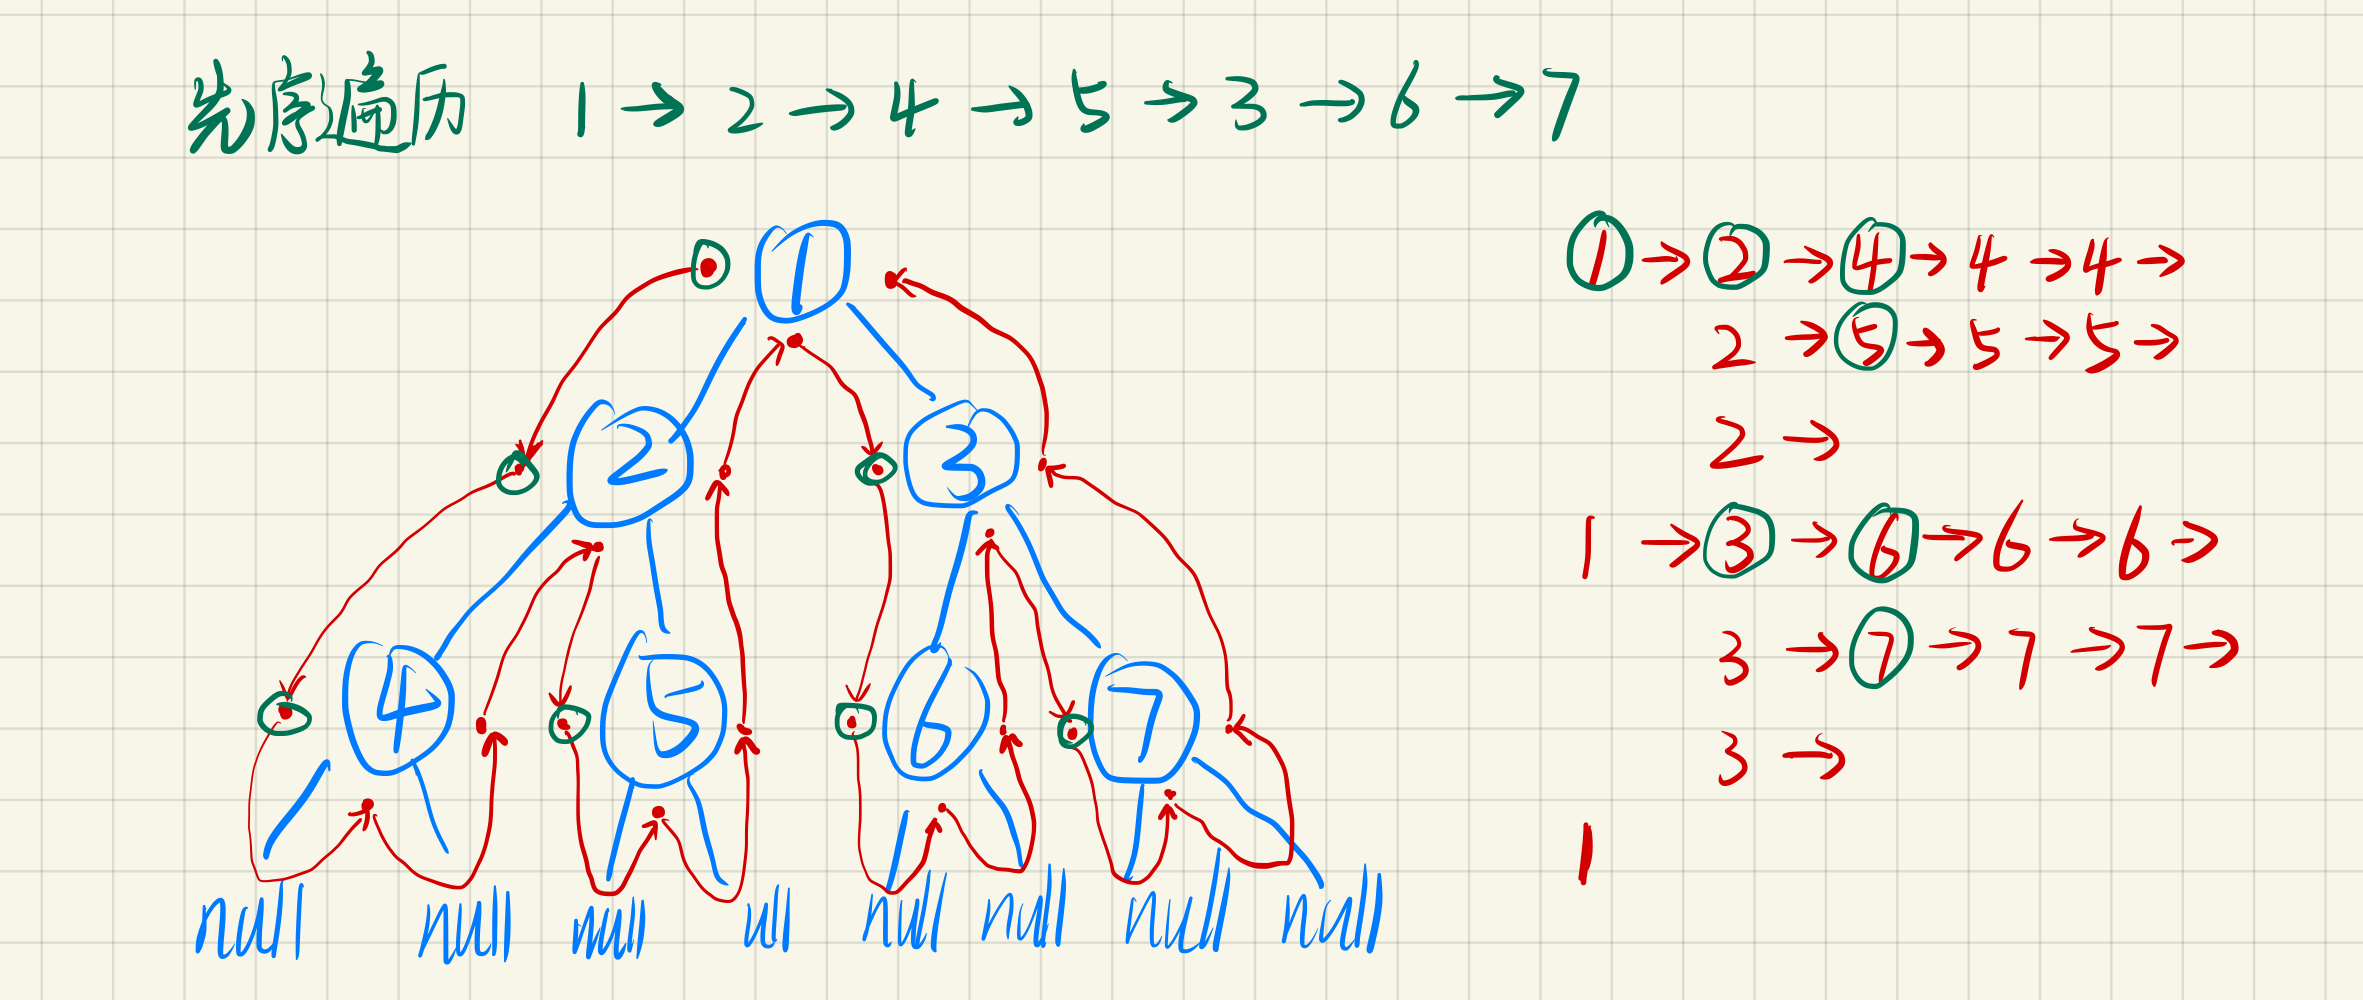 先序遍历 1 → 2 → 4 → 5 → 3 → 6 → 7
1
2 3
4 5 6 7
null null null ull null null null null
1 → 2 → 4 → 4 → 4 →
2 → 5 → 5 → 5 →
2 →
1 → 3 → 6 → 6 → 6 →
3 → 7 → 7 → 7 →
3 →
1